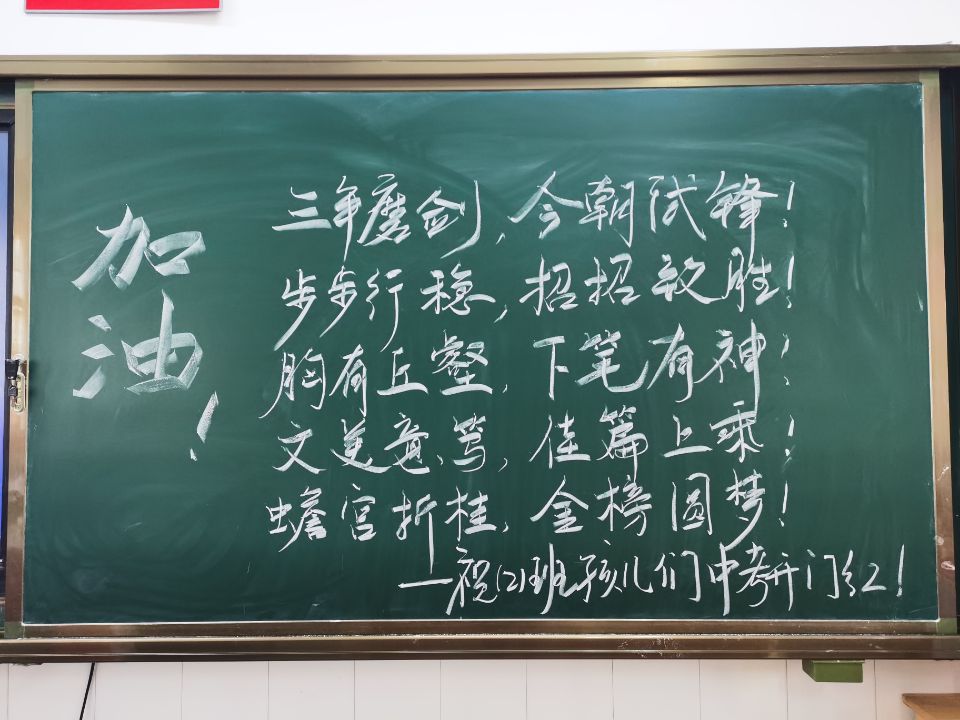 加油！
三年磨剑，今朝试锋！
步步行稳，招招致胜！
胸有丘壑，下笔有神！
文美意笃，佳篇上乘！
蟾宫折桂，金榜圆梦！
—祝(2)班孩儿们中考开门红！